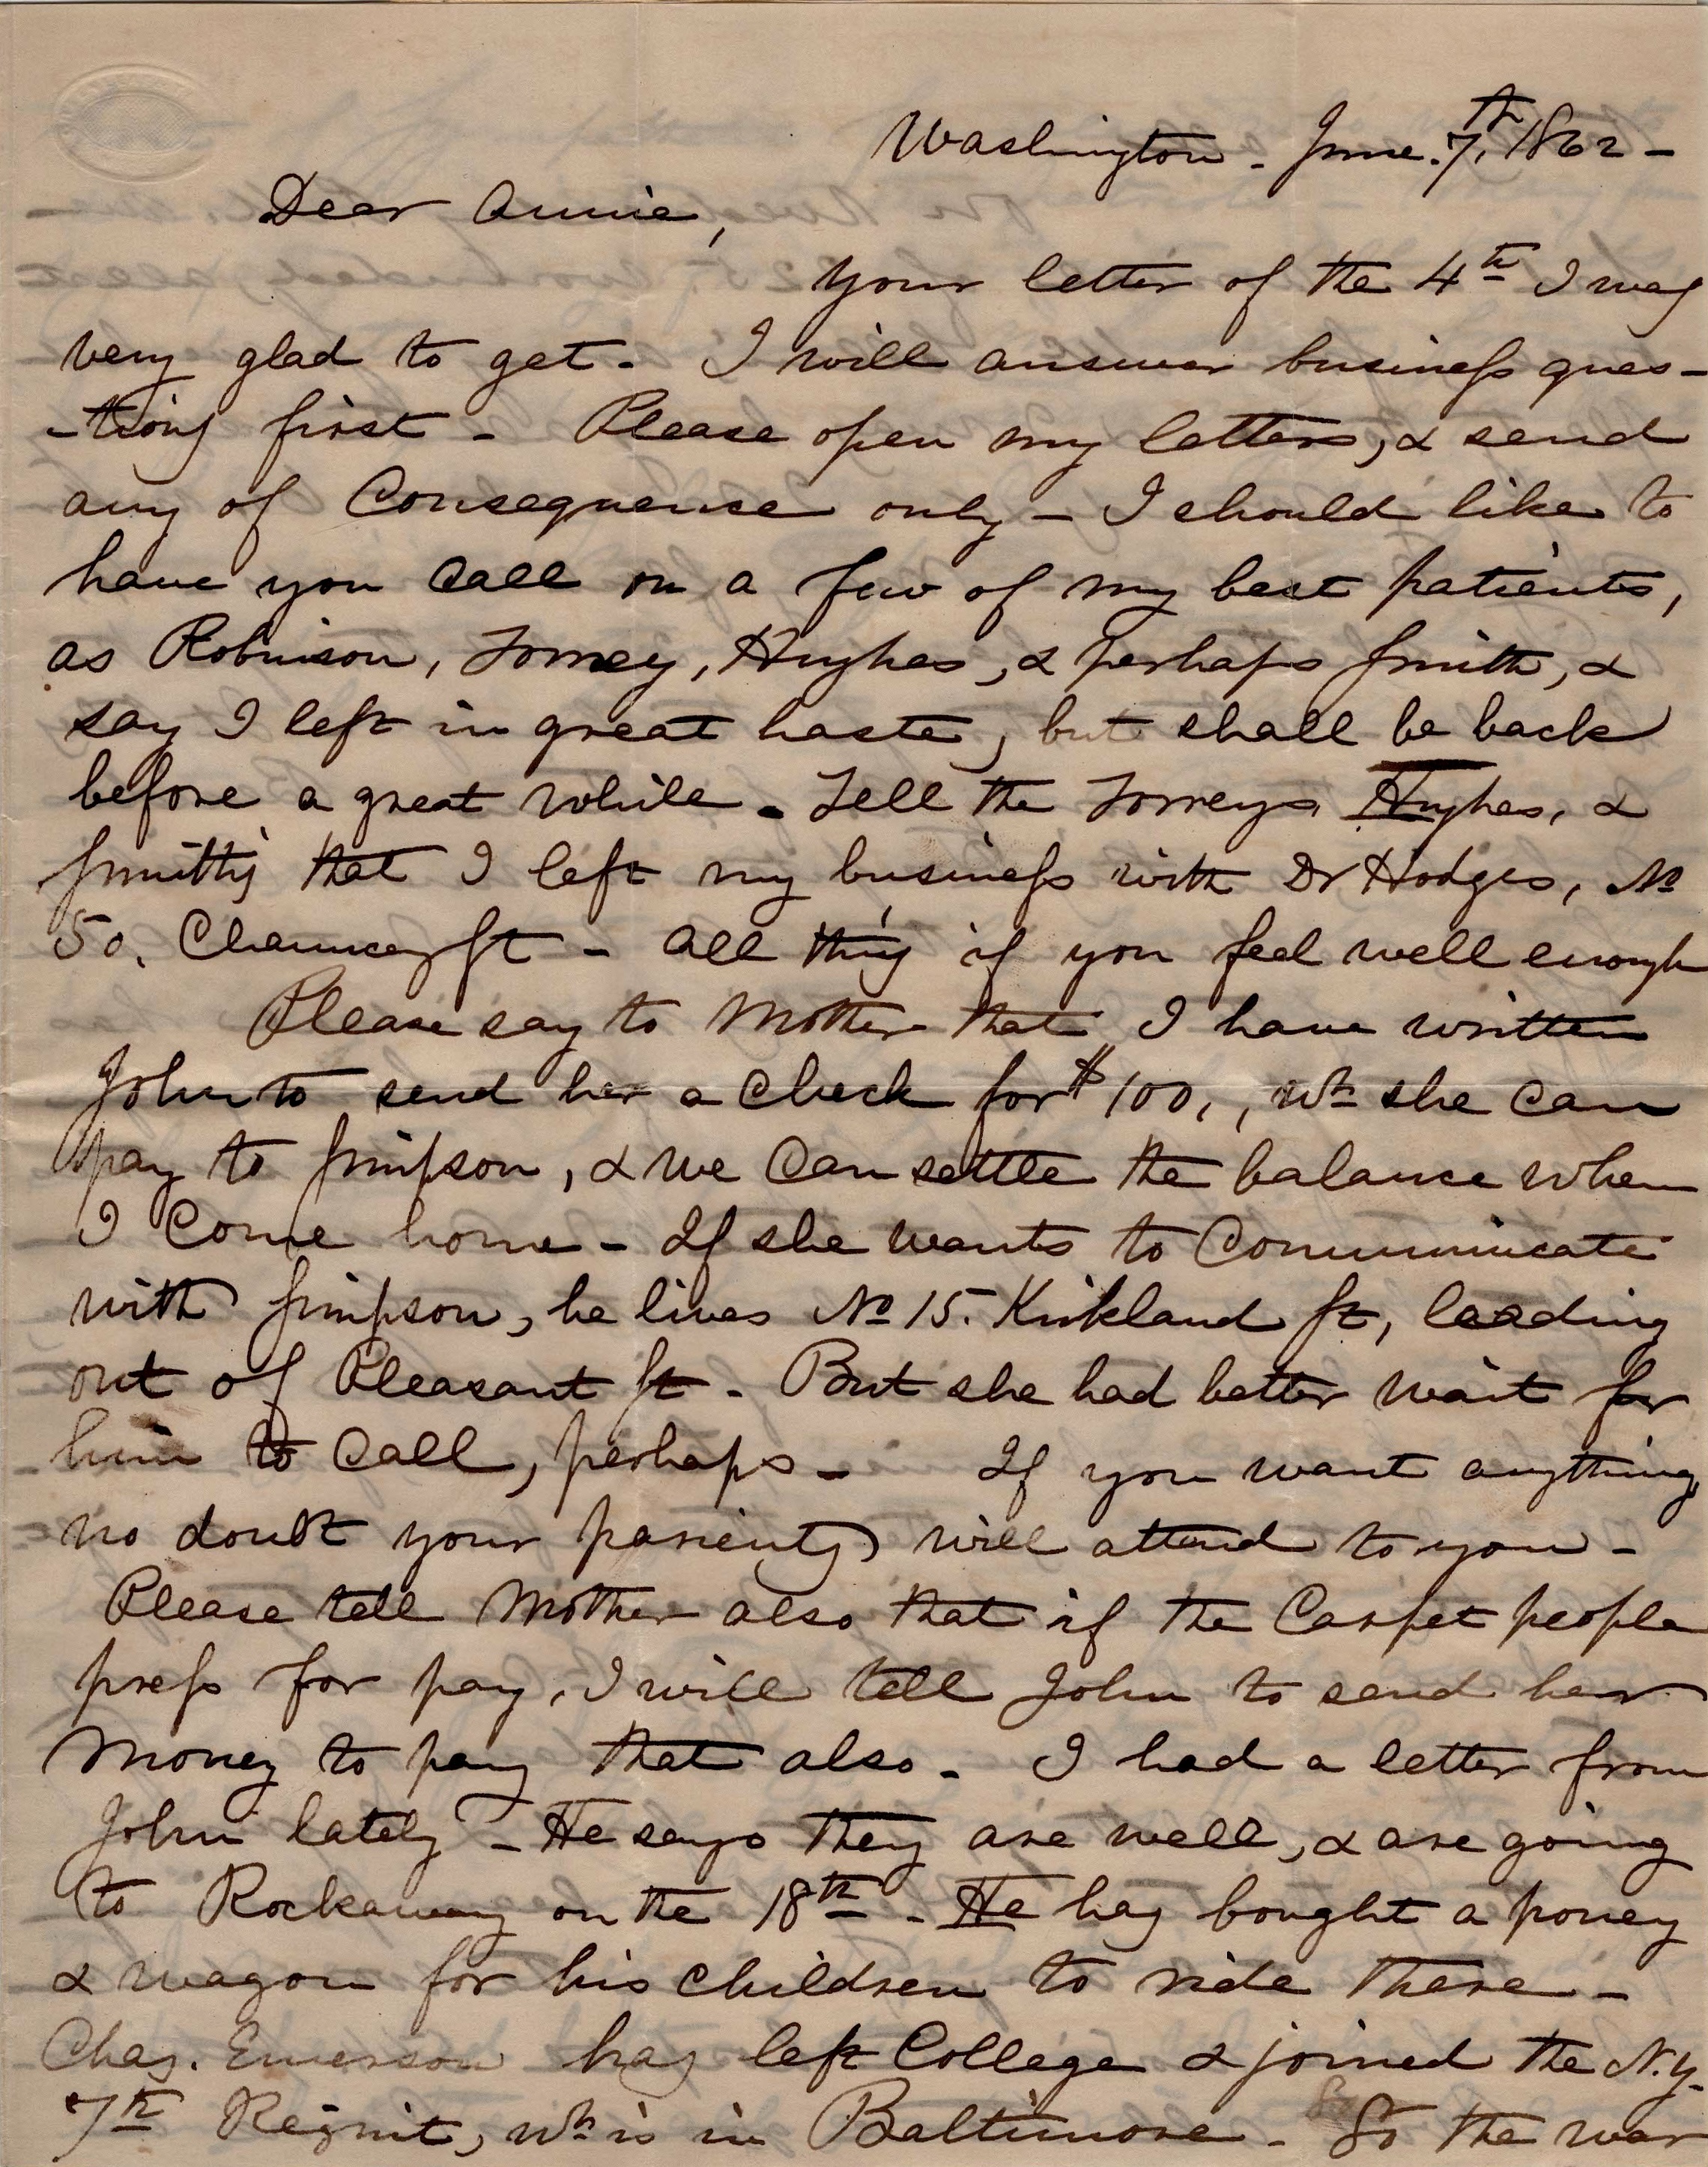 Washington - June. 7th, 1862 -
Dear Annie,
Your letter of the 4th I was
very glad to get - I will answer business ques-
-tions first - Please open my letters, & send
any of Consequence only - I should like to
have you call on a few of my best patients,
as Robinson, Torrey, Hughes, & perhaps Smith, &
say I left in great haste, but shall be back
before a great while. Tell the Torreys, Hughes, &
Smiths that I left my business with Dr Hodges, No
50. Chauncey St - All this if you feel well enough
Please say to Mother that I have written
John to send her a check for $100,, wh she can
pay to Simpson, & we can settle the balance when
I come home - If she wants to Communicate
with Simpson, he lives No 15. Kirkland St, leading
out of Pleasant St - But she had better wait for
him to call, perhaps - If you want anything
no doubt your parients will attend to you -
Please tell Mother also that if the Carpet people
press for pay, I will tell John to send her
money to pay that also - I had a letter from
John lately - He says they are well, & are going
to Rockaway on the 18th - He has bought a poney
& wagon for his children to ride there -
Chas. Emerson has left College & joined the N.Y.
7th Regmt, wh is in Baltimore - So the war